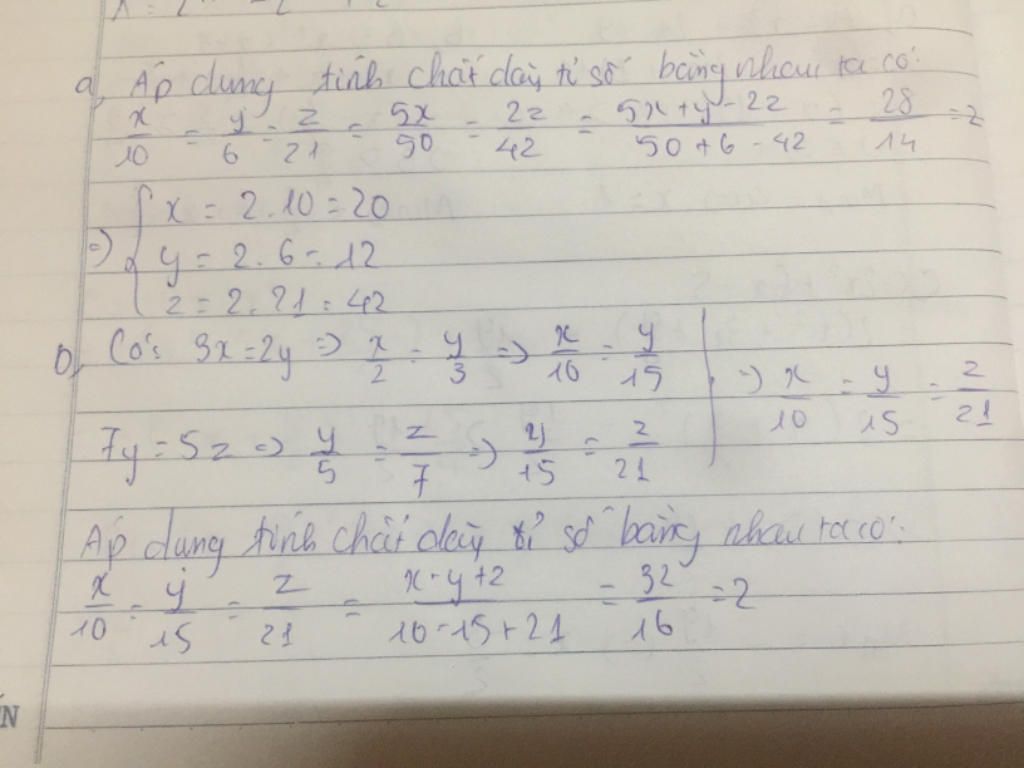 a, Áp dụng tính chất dãy tỉ số bằng nhau ta có:
x/10 = y/6 = z/21 = 5x/50 = 2z/42 = (5x+y-2z)/(50+6-42) = 28/14 = 2
=> { x = 2.10 = 20
y = 2.6 = 12
z = 2.21 = 42
b, Có: 3x = 2y => x/2 = y/3 => x/10 = y/15
=> x/10 = y/15 = z/21
7y = 5z => y/5 = z/7 => y/15 = z/21
Áp dụng tính chất dãy tỉ số bằng nhau ta có:
x/10 = y/15 = z/21 = (x-y+z)/(10-15+21) = 32/16 = 2